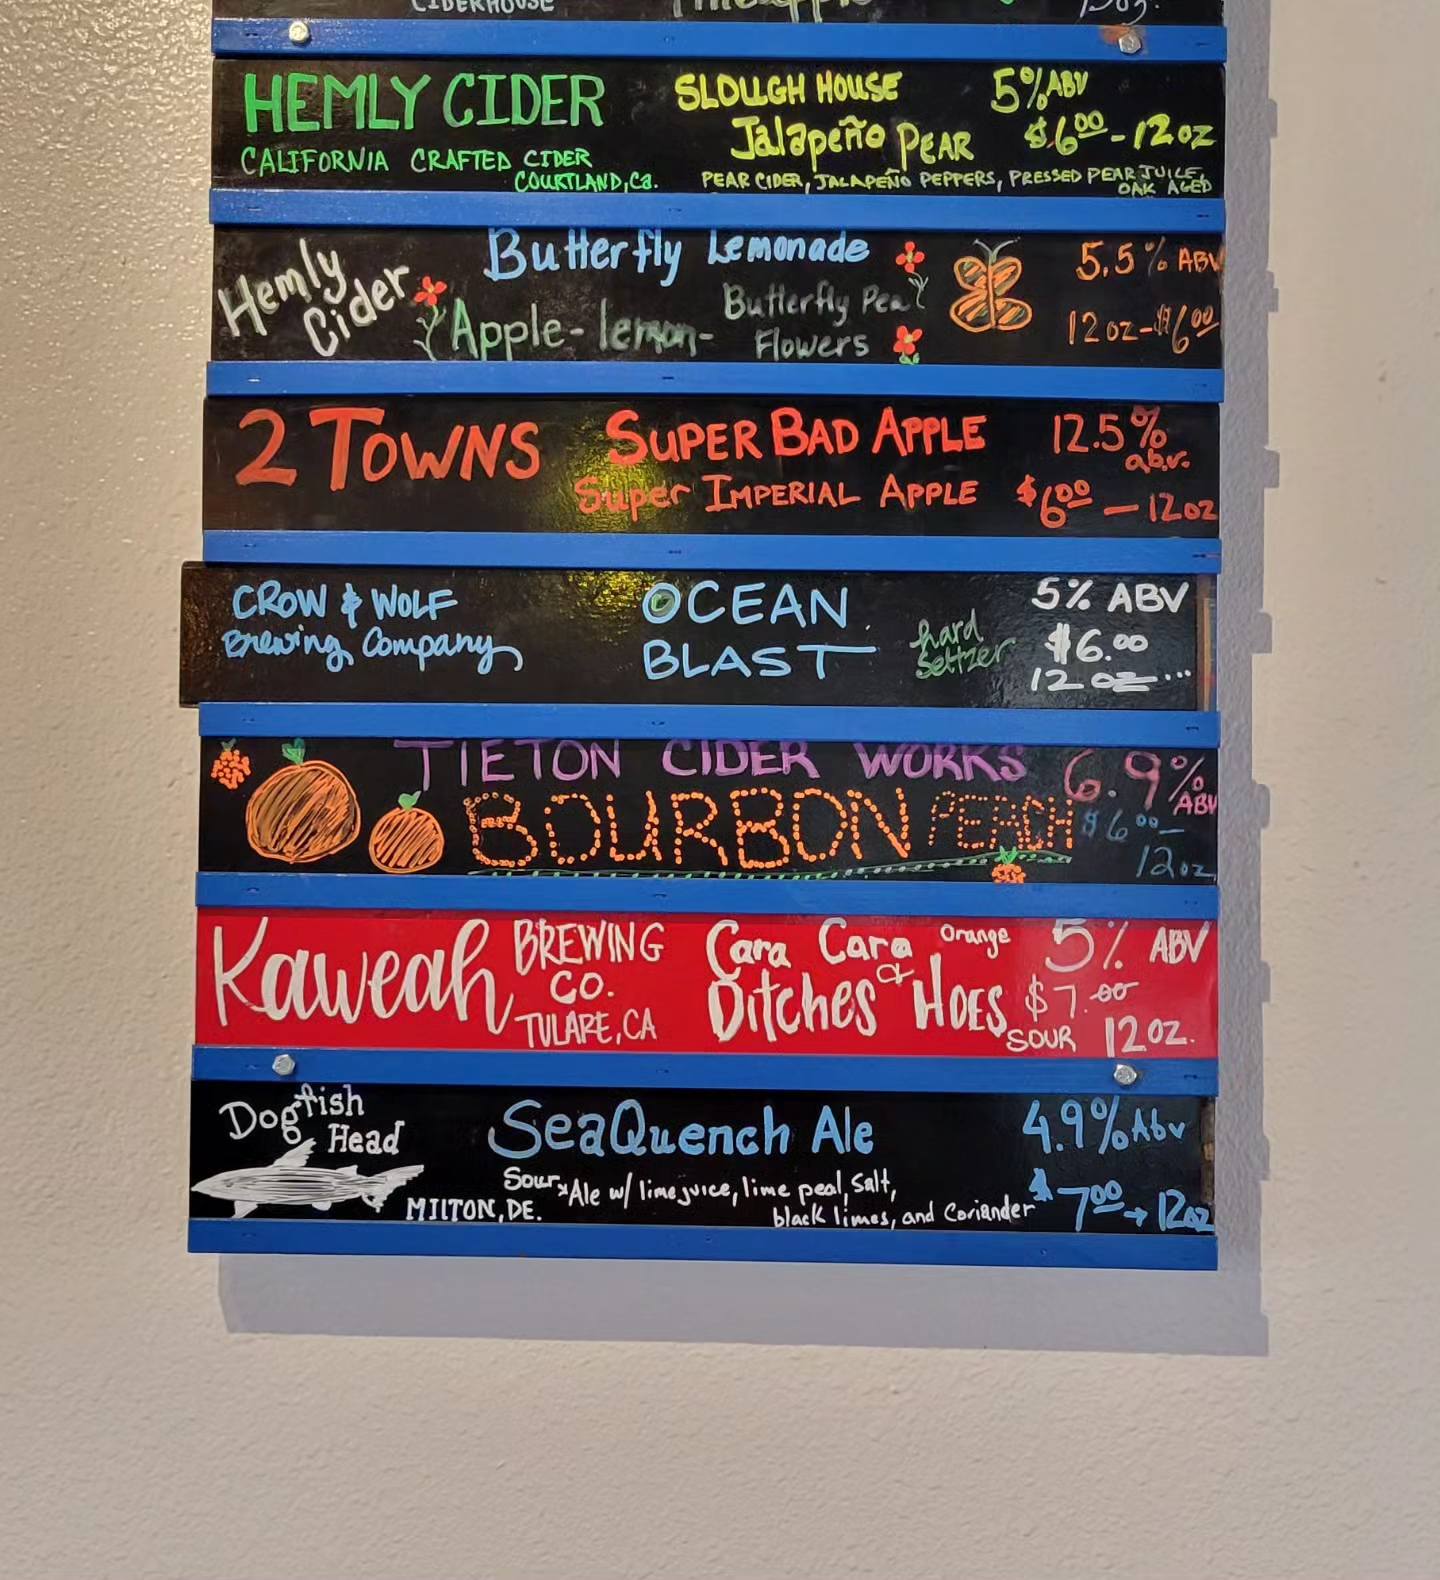 CIDERHOUSE Pineapple
HEMLY CIDER
CALIFORNIA CRAFTED CIDER
COURTLAND, Ca.
SLOUGH HOUSE
Jalapeño PEAR
PEAR CIDER, JALAPEÑO PEPPERS, PRESSED PEAR JUICE,
OAK AGED
5% ABV
$6.00 - 12 oz
Hemly
Cider
Butterfly Lemonade
Apple - lemon -
Butterfly Pea
Flowers
5.5% ABV
12 oz - $6.00
2 TOWNS
SUPER BAD APPLE
Super IMPERIAL APPLE
12.5%
abv.
$6.00 — 12 oz
CROW & WOLF
Brewing Company
OCEAN
BLAST
hard
Seltzer
5% ABV
$6.00
12 oz...
TIETON CIDER WORKS
BOURBON PEACH
6.9%
ABV
$6.00 -
12 oz
Kaweah
BREWING
CO.
TULARE, CA
Cara Cara Orange
Ditches & HOES
5% ABV
$7.00
SOUR 12 OZ.
Dogfish
Head
MILTON, DE.
SeaQuench Ale
Sour Ale w/ lime juice, lime peal, Salt,
black limes, and Coriander
4.9% Abv
$7.00 → 12oz